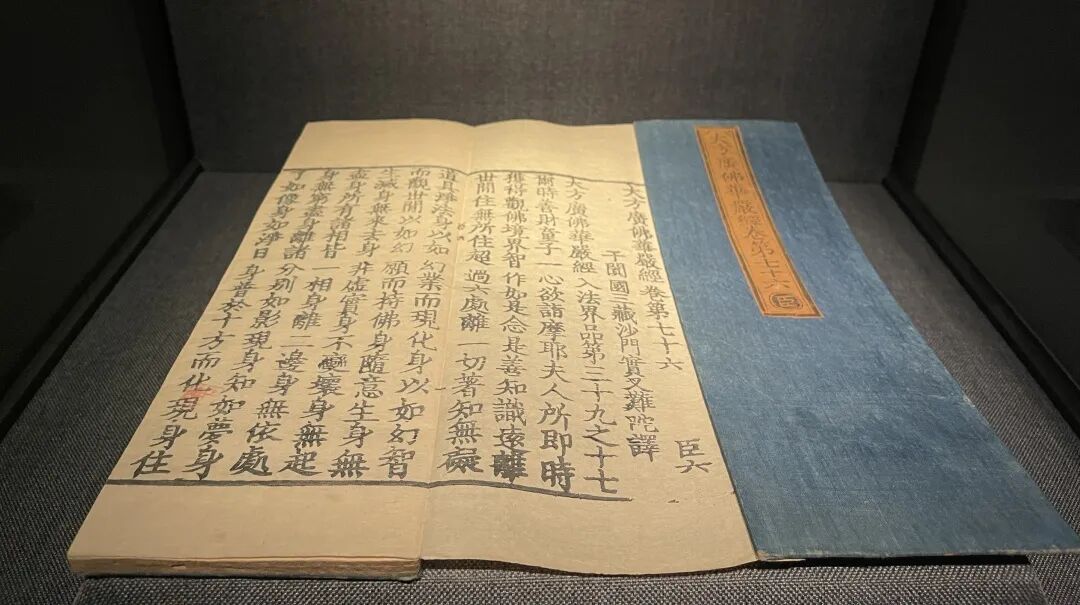 大方廣佛華嚴經卷第七十六 臣
大方廣佛華嚴經卷第七十六 臣六
于闐國三藏沙門實叉難陀譯
大方廣佛華嚴經入法界品第三十九之十七
爾時善財童子一心欲詣摩耶夫人所即時
獲得觀佛境界智作如是念是善知識遠離
世間住無所住超過六處離一切著知無礙
道具淨法身以如幻業而現化身以如幻智
而觀世間以如幻願而持佛身隨意生身無
生滅身無來去身非虛實身不變壞身無起
盡身所有諸相皆一相身離二邊身無依處
身無窮盡身離諸分別如影現身知如夢身
了如像身如淨日身普於十方而化現身住